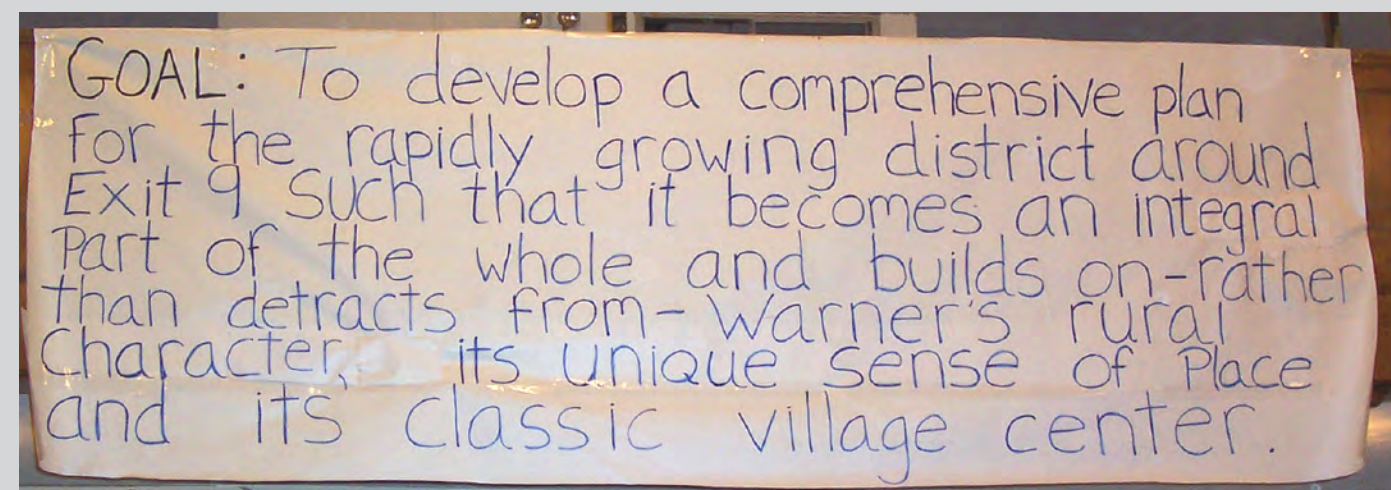 GOAL: To develop a comprehensive plan
for the rapidly growing district around
Exit 9 Such that it becomes an integral
Part of the whole and builds on-rather
than detracts from- Warner's rural
Character, its unique sense of Place
and its classic village center.